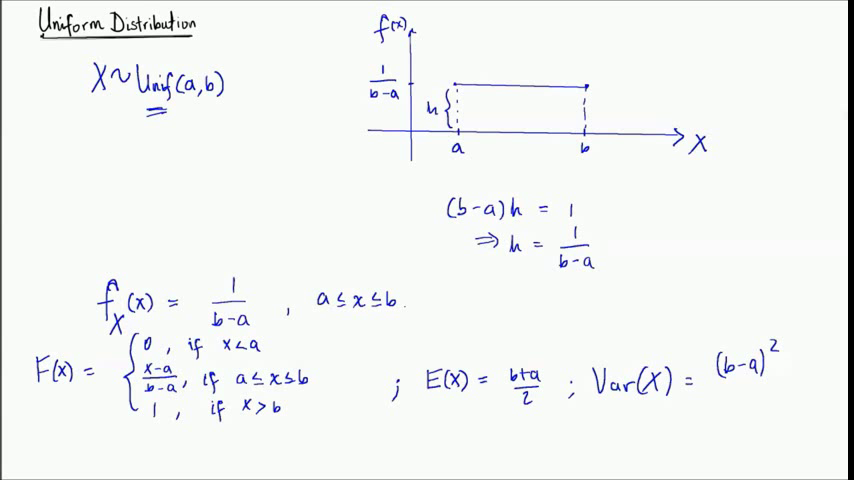 Uniform Distribution
X ~ Unif(a,b)
f(x)
1/(b-a)
h {
a b X
(b-a)h = 1
⇒ h = 1/(b-a)
f_X(x) = 1/(b-a) , a ≤ x ≤ b.
F(x) = { 0 , if x < a
(x-a)/(b-a) , if a ≤ x ≤ b
1 , if x > b
; E(X) = (b+a)/2 ; Var(X) = (b-a)²